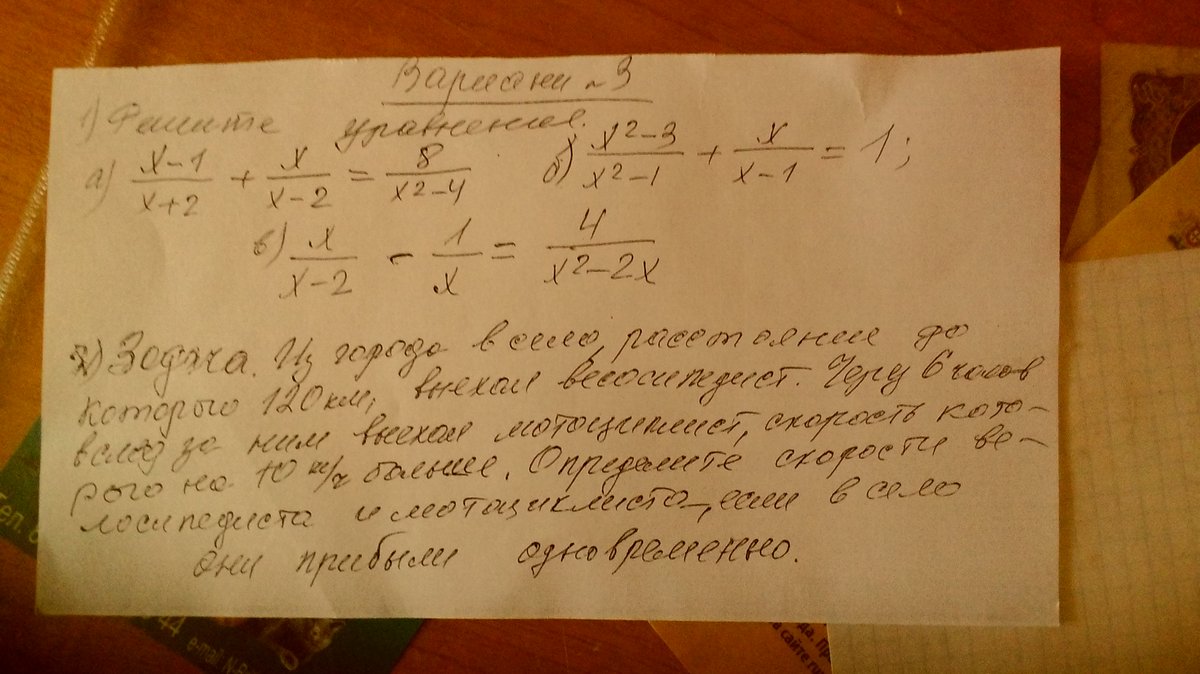 Вариант ~ 3
1) Решите уравнение.
а) x-1/x+2 + x/x-2 = 8/x²-4 б) x²-3/x²-1 + x/x-1 = 1;
в) x/x-2 - 1/x = 4/x²-2x
2) Задача. Из города в село, расстояние до
которого 120 км, выехал велосипедист. Через 6 часов
вслед за ним выехал мотоциклист, скорость кото-
рого на 10 км/ч больше. Определите скорости ве-
лосипедиста и мотоциклиста, если в село
они прибыли одновременно.
44
e-mail
да, пр
в сайте